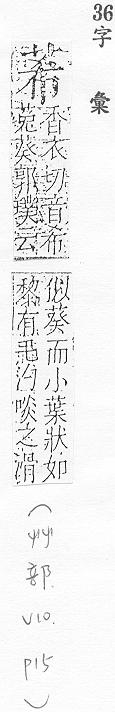 36字 彙
莃
香衣切音希
菟葵郭璞云
似葵而小葉狀如
黎有毛汋啖之滑
(艸部. V10. P15)